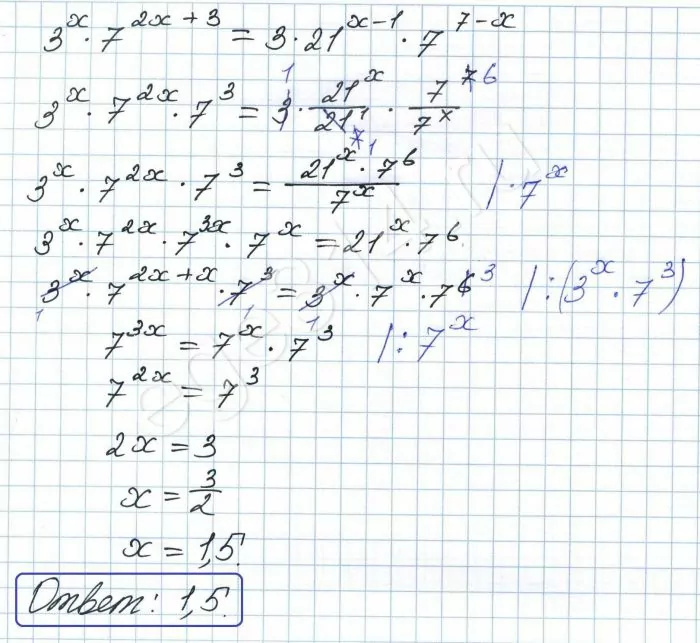 3^x · 7^{2x+3} = 3 · 21^{x-1} · 7^{7-x}
3^x · 7^{2x} · 7^3 = 3 1 · 21^x / 21^1 7 1 · 7^7 6 / 7^x
3^x · 7^{2x} · 7^3 = 21^x · 7^6 / 7^x | · 7^x
3^x · 7^{2x} · 7^{3x} · 7^x = 21^x · 7^6
3^x 1 · 7^{2x+x} · 7^3 1 = 3^x 1 · 7^x · 7^6 3 | : (3^x · 7^3)
7^{3x} = 7^x · 7^3 | : 7^x
7^{2x} = 7^3
2x = 3
x = 3/2
x = 1,5.
Ответ: 1,5.